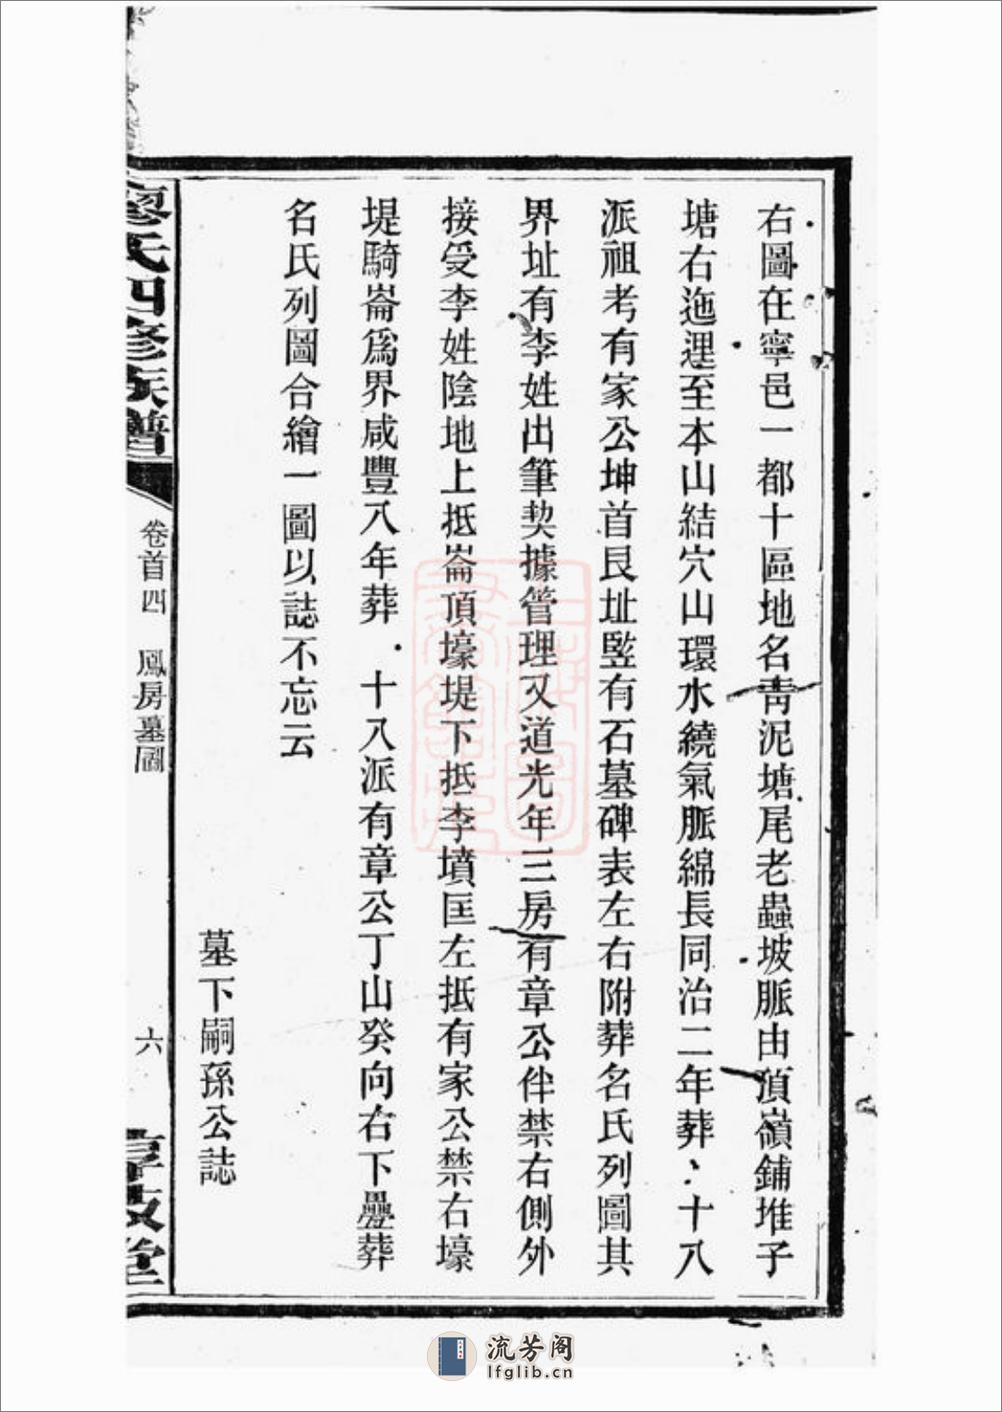 右圖在寧邑一都十區地名靑泥塘尾老蟲坡脈由頂嶺鋪堆子
塘右迤邐至本山結穴山環水繞氣脈綿長同治二年葬十八
派祖考有家公坤首艮址竪有石墓碑表左右附葬名氏列圖其
界址有李姓出筆契據管理又道光年三房有章公伴禁右側外
接受李姓陰地上抵崙頂壕堤下抵李墳匡左抵有家公禁右壕
堤騎崙爲界咸豐八年葬十八派有章公丁山癸向右下疊葬
名氏列圖合繪一圖以誌不忘云
墓下嗣孫公誌
廖氏四修族譜
卷首四 鳳房墓圖
六
流芳阁
lfglib.cn